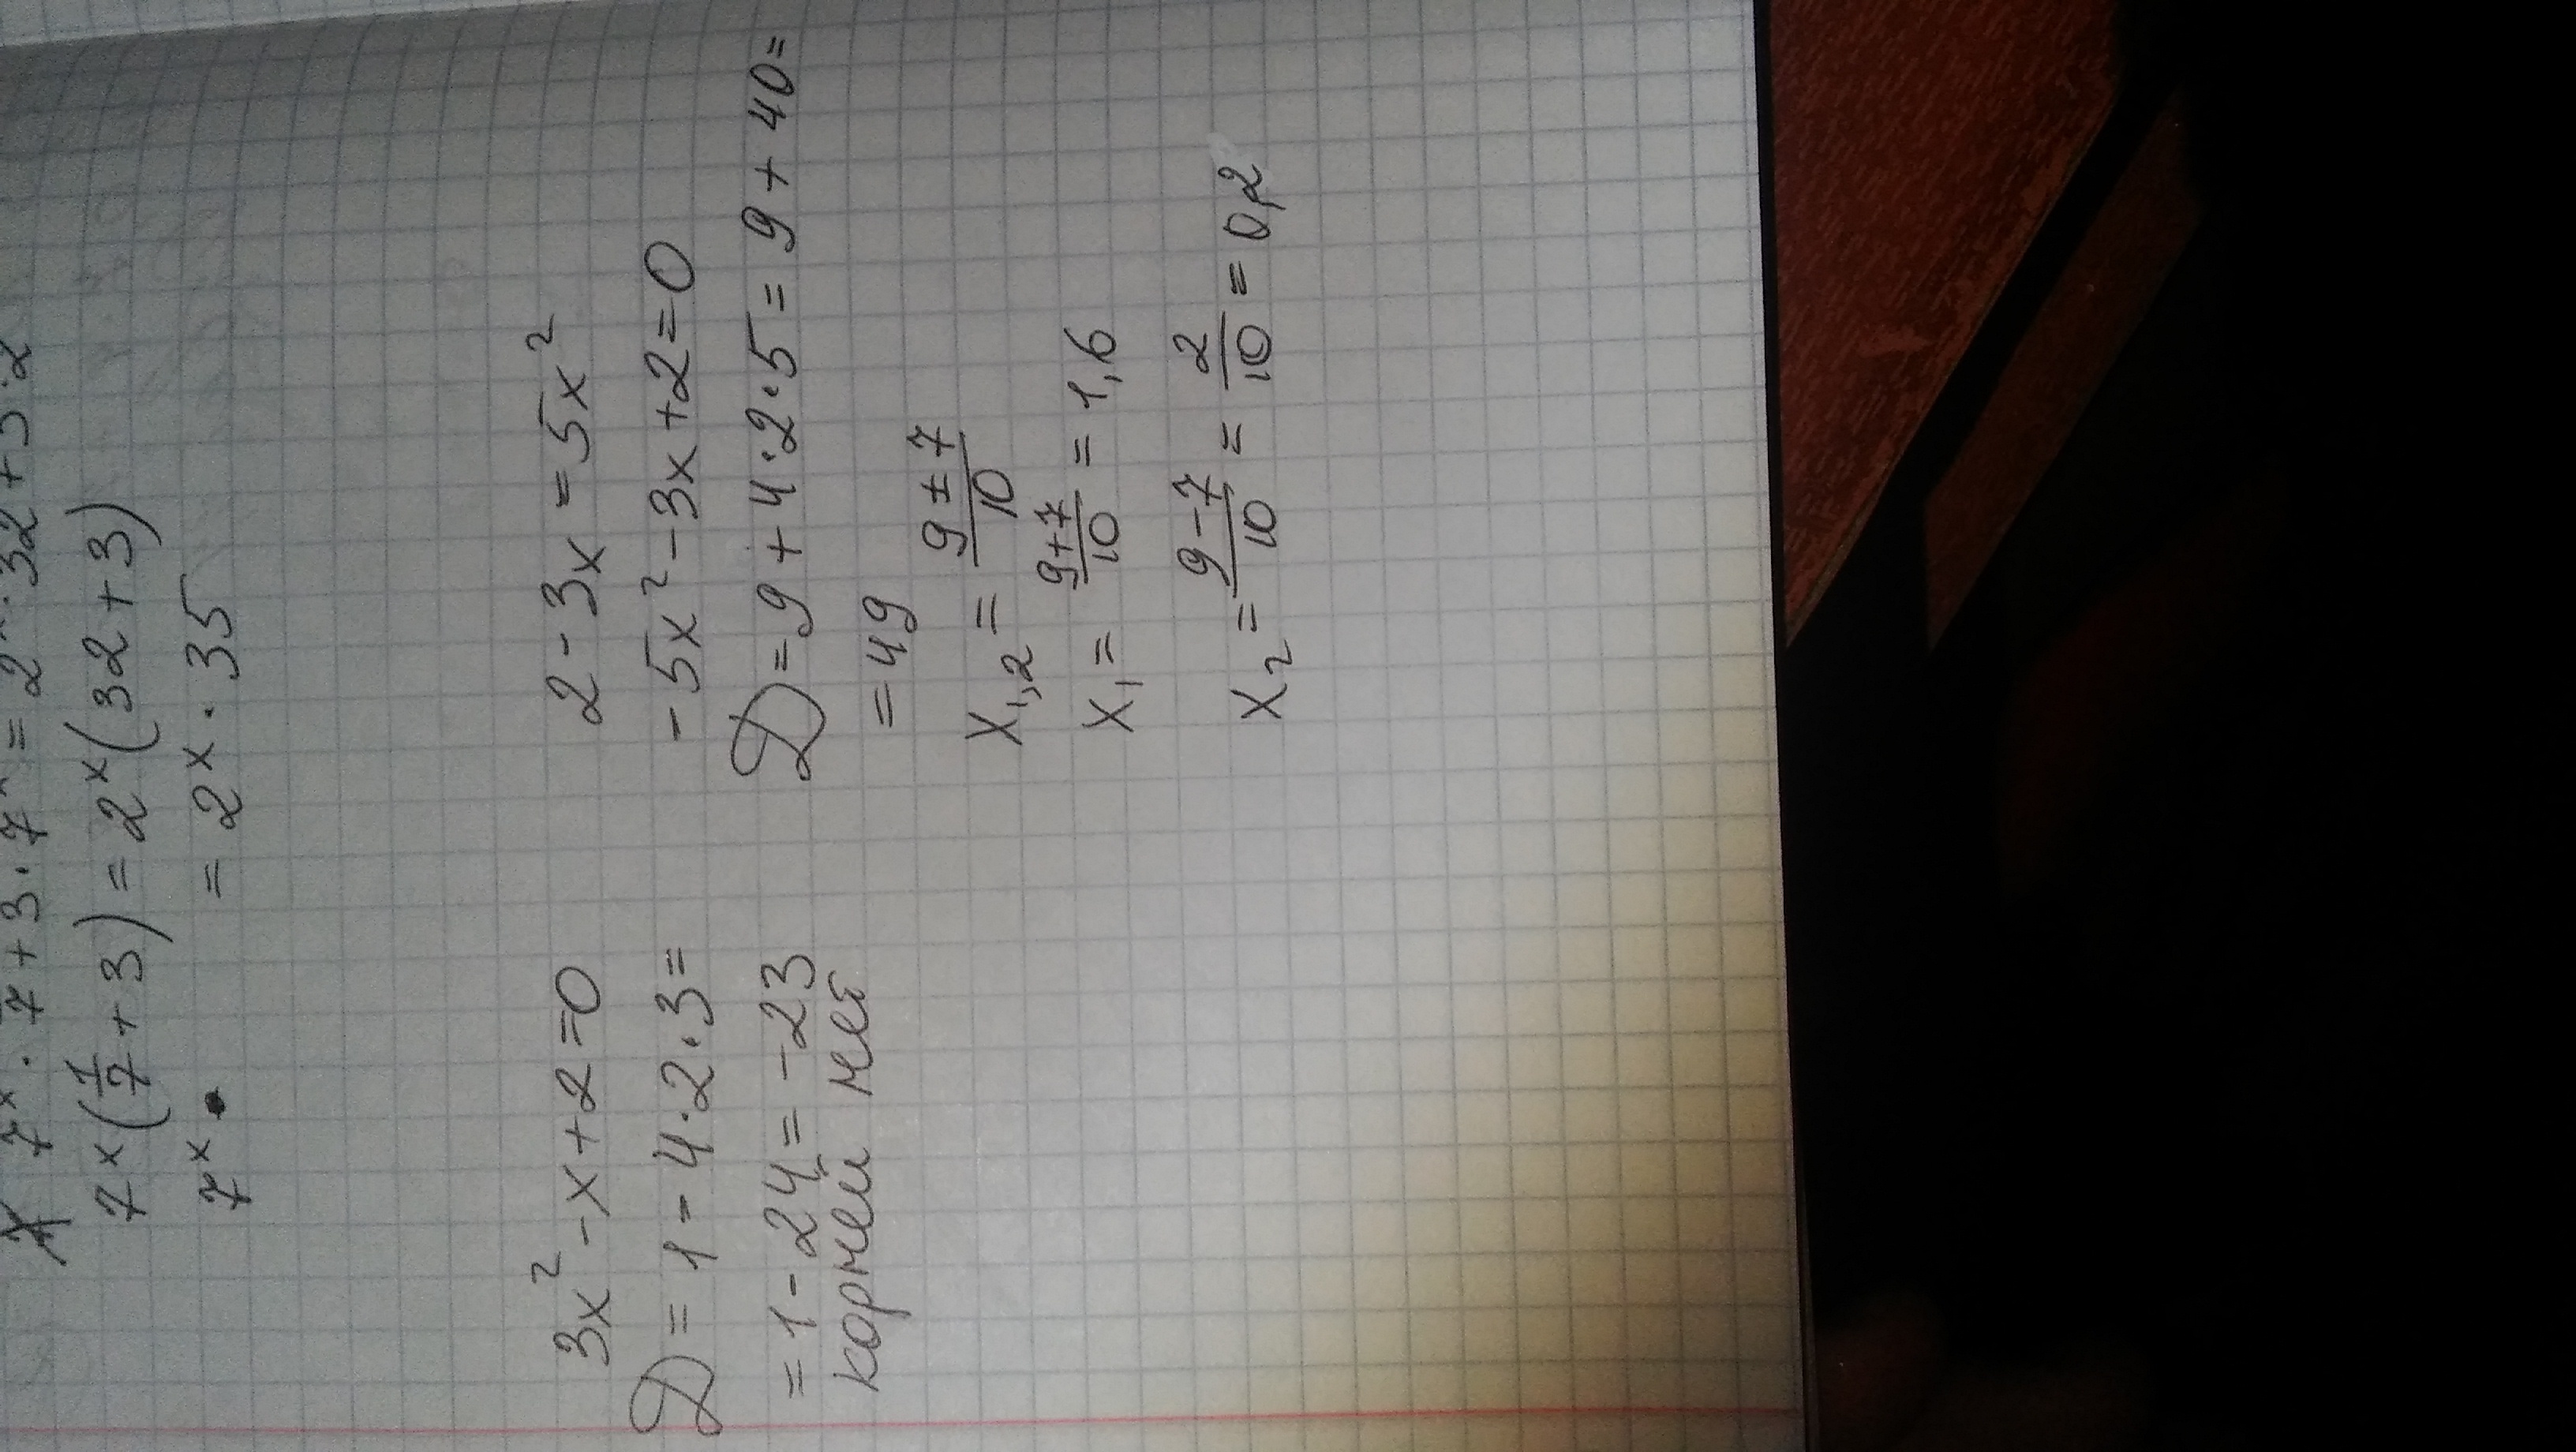 7ˣ · 7 + 3 · 7ˣ = 2ˣ · 32 + 3 · 2
7ˣ(1/7 + 3) = 2ˣ(32 + 3)
7ˣ· = 2ˣ · 35
3x² - x + 2 = 0
Д = 1 - 4 · 2 · 3 =
= 1 - 24 = -23
корней не
2 - 3x = 5x²
-5x² - 3x + 2 = 0
Д = 9 + 4 · 2 · 5 = 9 + 40 =
= 49
x₁,₂ = (9 ± 7)/10
x₁ = (9 + 7)/10 = 1,6
x₂ = (9 - 7)/10 = 2/10 = 0,2